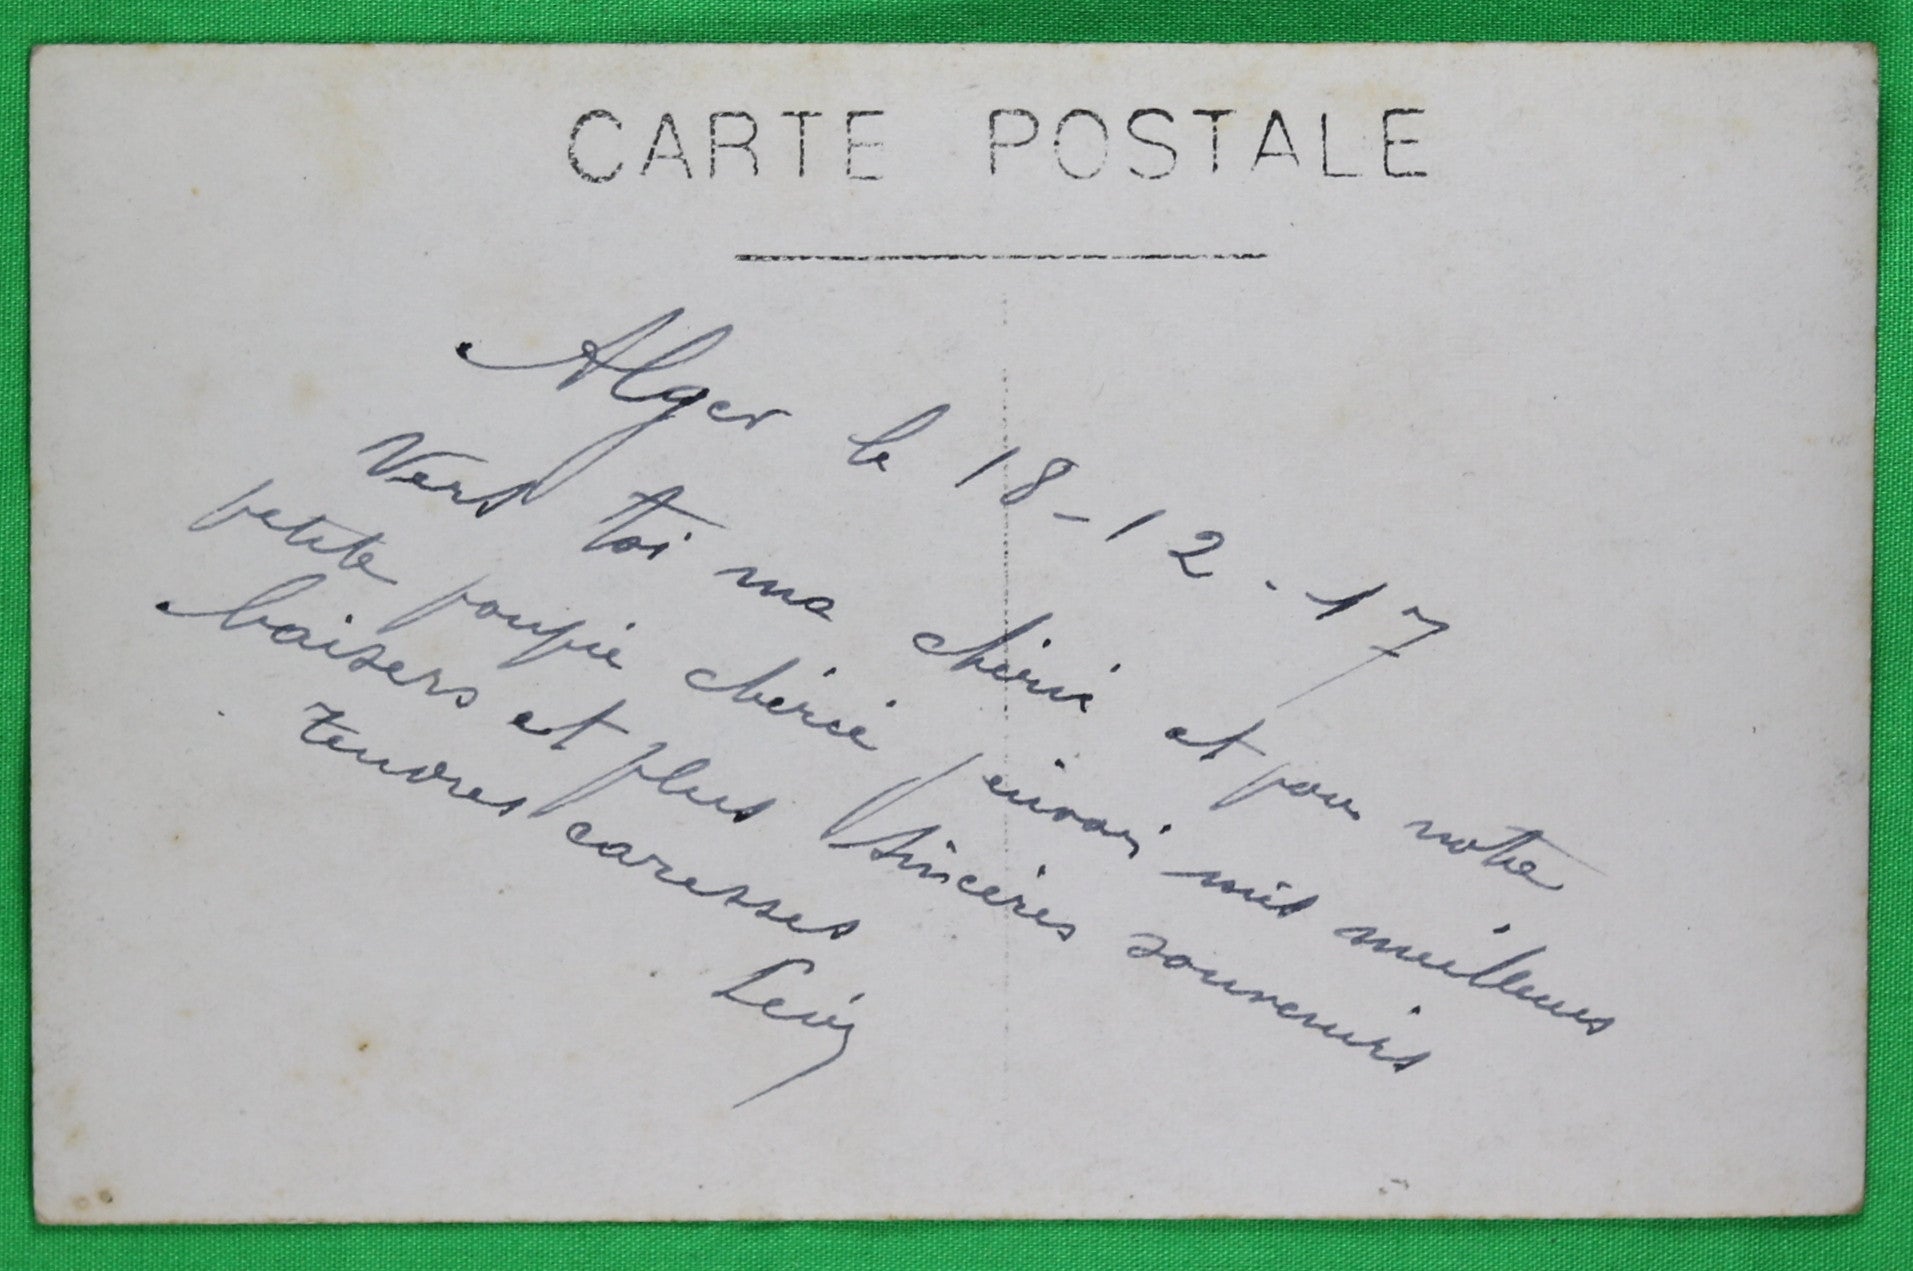 CARTE POSTALE
Alger le 18-12-17
Vers toi ma chérie et pour notre
petite poupée chérie j'envoi mes meilleurs
baisers et plus sincères souvenirs
tendres caresses